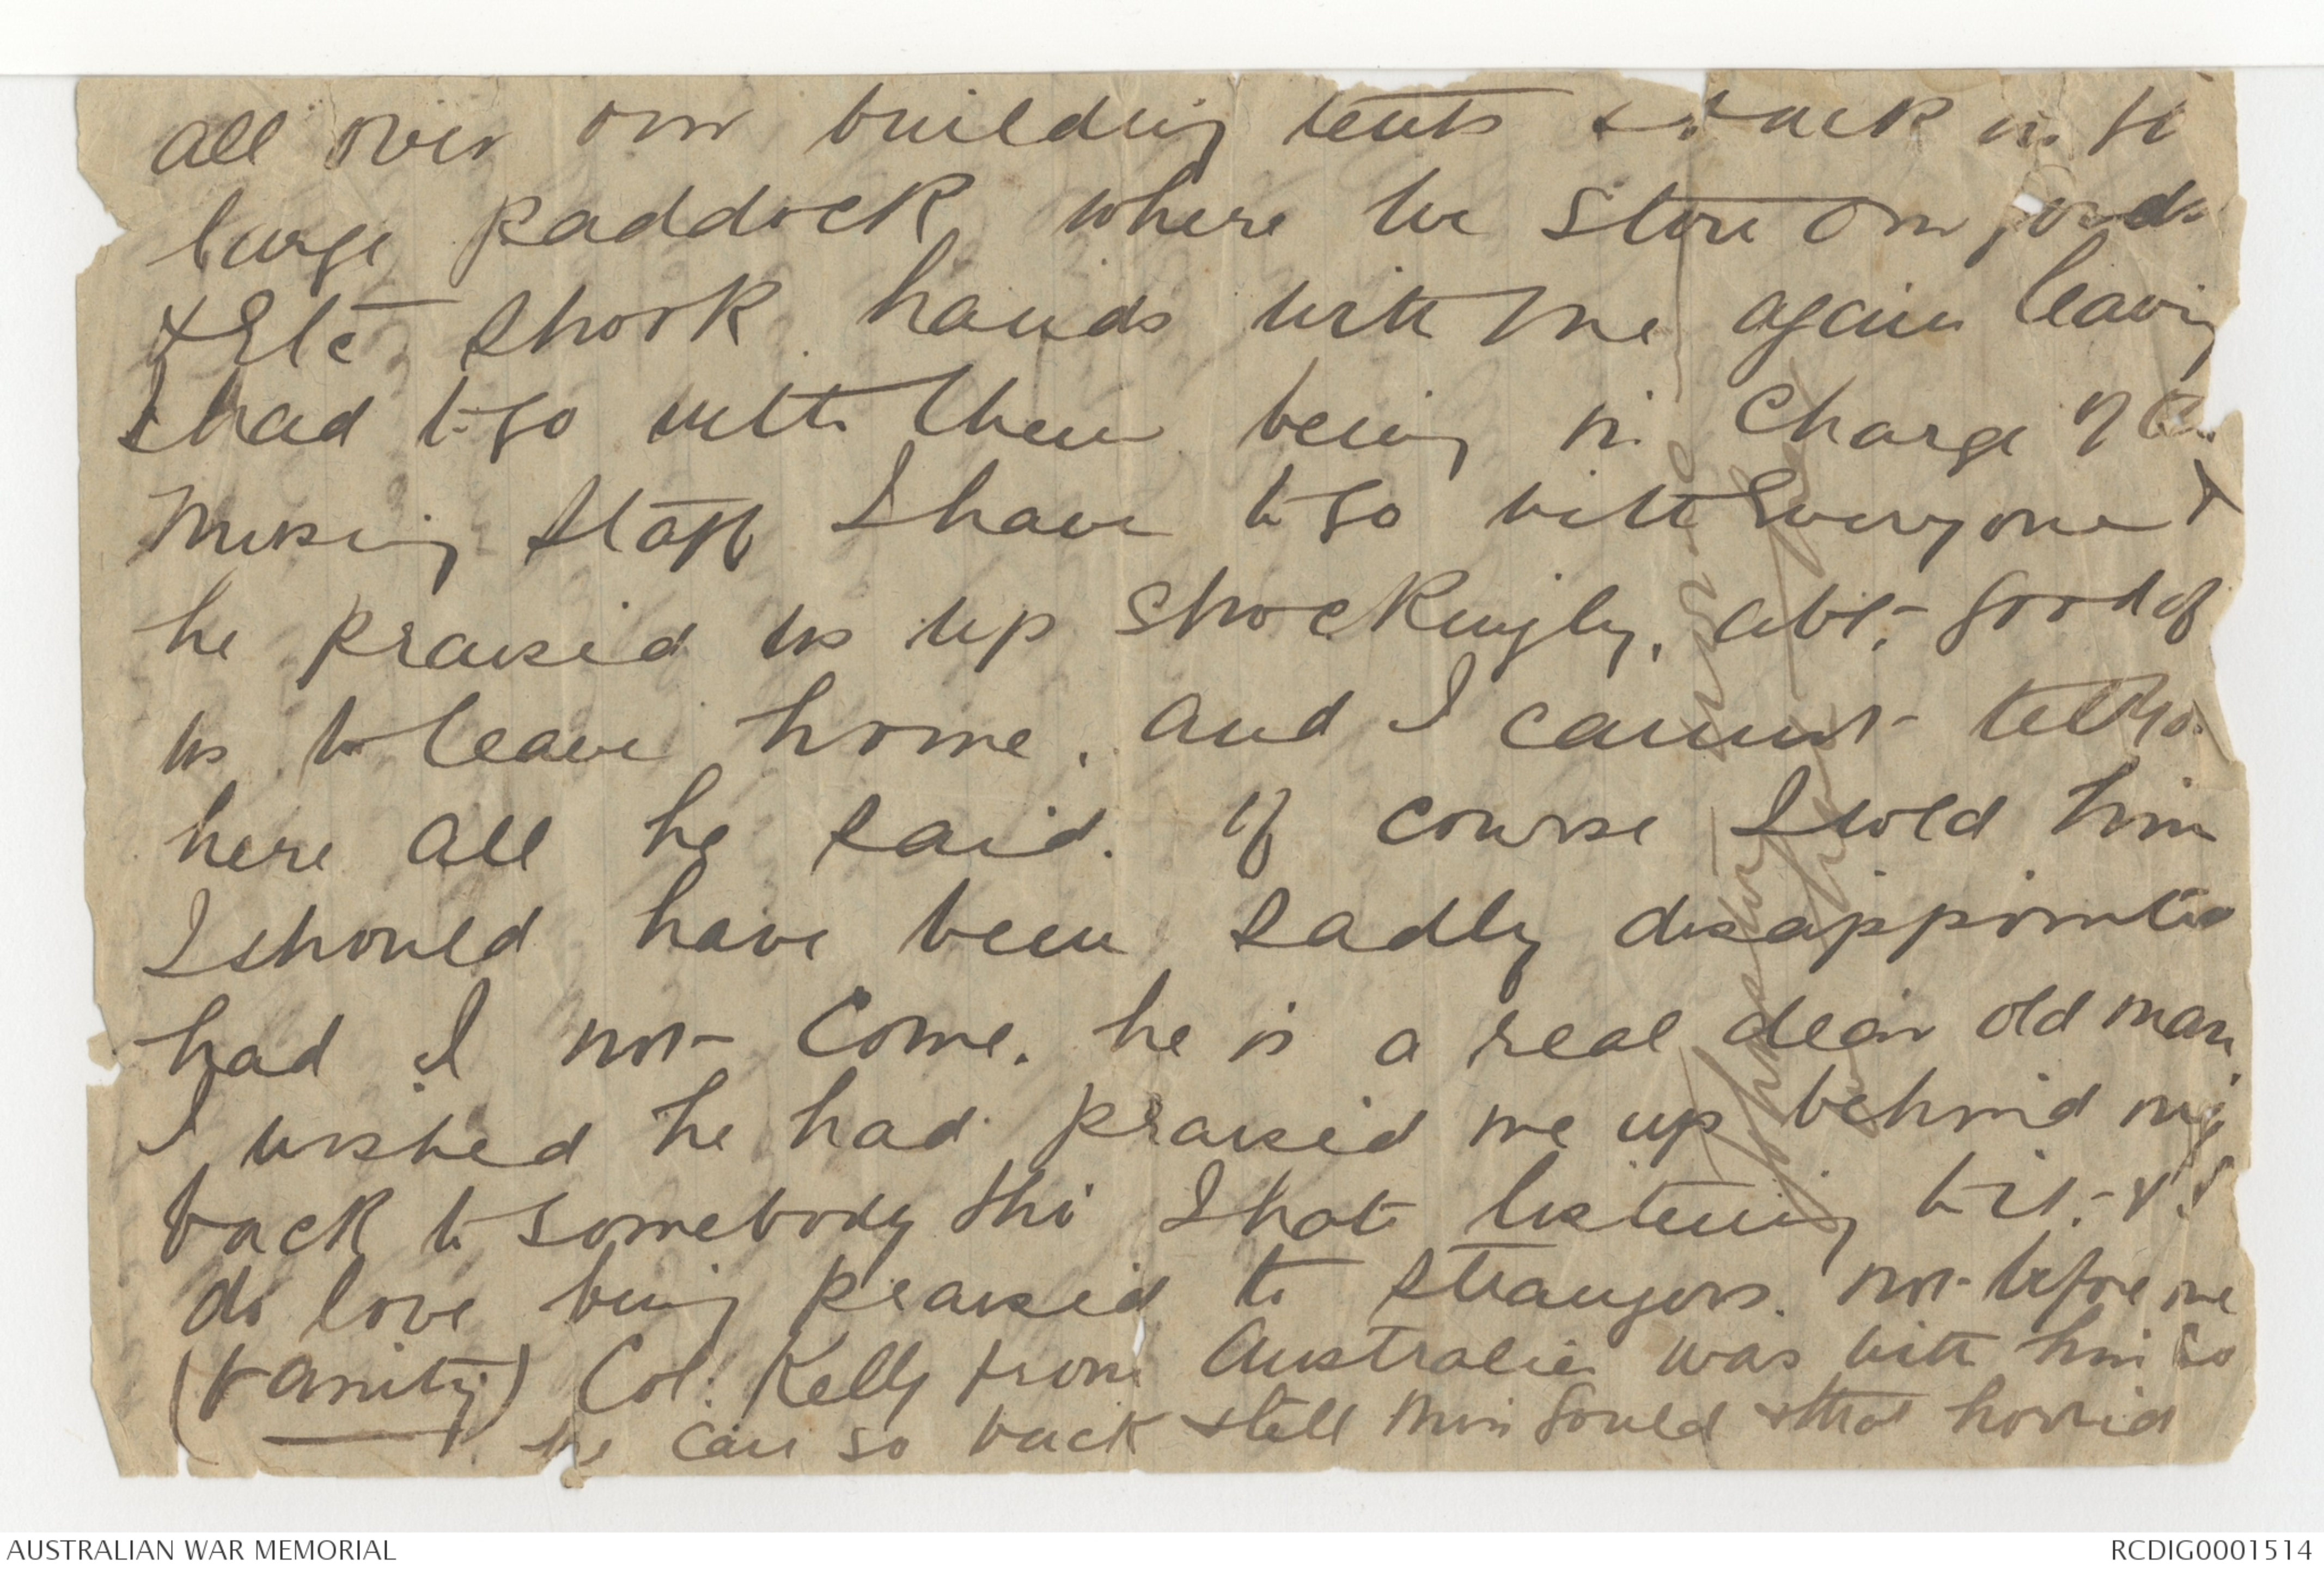 all over our building tents & back in to
large paddock where we store our goods
& Etc shook hands with me again leaving
I had to go with them being in charge of the
Nursing Staff I have to go with Everyone &
he praised us up shockingly, abt. good of
us to leave home, and I cannot tell you
here all he said. Of course I told him
I should have been sadly disappointed
had I not come. he is a real dear old man,
I wished he had praised me up behind my
back to somebody tho I hate listening to it. & I
do love being praised to strangers. not before me
(vanity) Col. Kelly from Australia was with him so
he can go back & tell Miss Gould & that horrid
AUSTRALIAN WAR MEMORIAL
RCDIG0001514